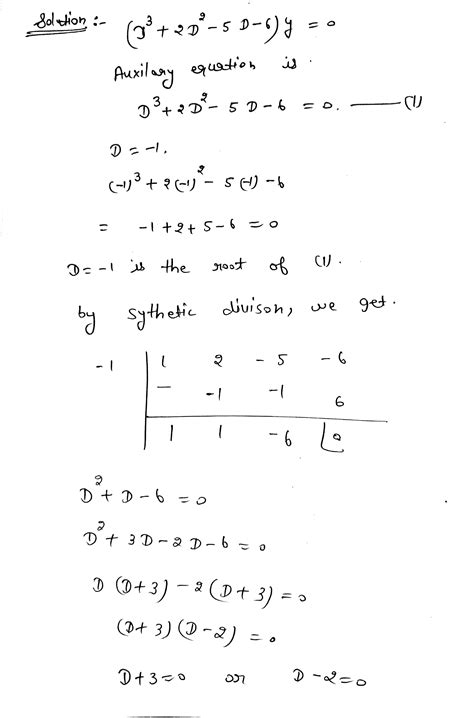 Solution :- (D³ + 2D² - 5D - 6) y = 0
Auxilary equation is .
D³ + 2D² - 5D - 6 = 0. —— (1)
D = -1,
(-1)³ + 2(-1)² - 5(-1) - 6
= -1 + 2 + 5 - 6 = 0
D = -1 is the root of (1) .
by sythetic divison, we get .
-1 | 1 2 -5 -6
— -1 -1 6
1 1 -6 0
D² + D - 6 = 0
D² + 3D - 2D - 6 = 0
D (D+3) - 2 (D+3) = 0
(D+3) (D-2) = 0
D+3 = 0 or D-2 = 0